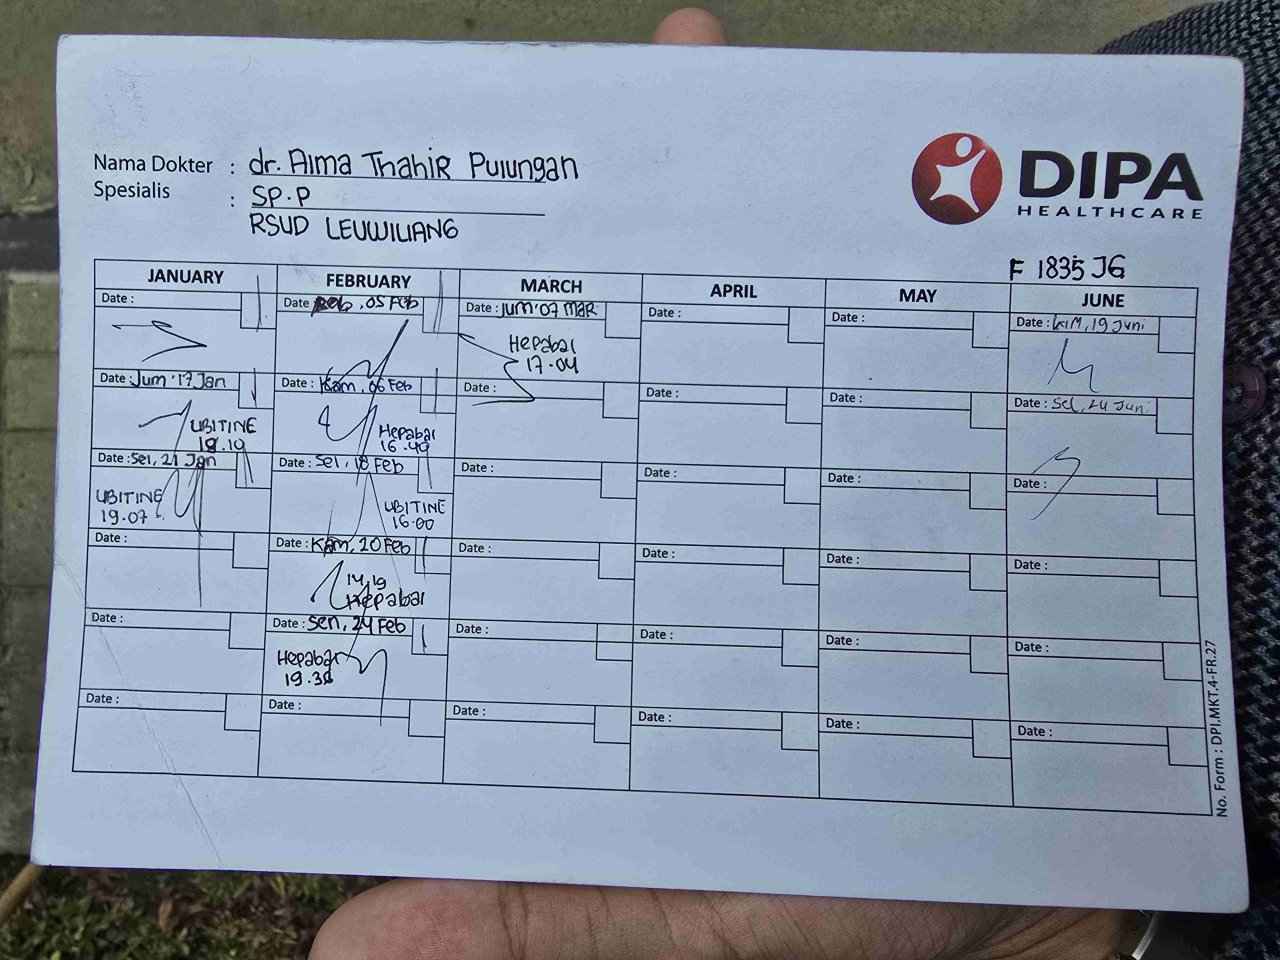 Nama Dokter : dr. Alma Thahir Pulungan
Spesialis : SP.P
RSUD LEUWILIANG
DIPA
HEALTHCARE
F 1835 JG
JANUARY FEBRUARY MARCH APRIL MAY JUNE
Date : Date : 05 Feb Date : Jum'07 Mar Date : Date : Date : 19 Juni
Hepabal
17.04
Date : Jum'17 Jan Date : Kam, 06 Feb Date : Date : Date : Date : Sel, 24 Juni
UBITINE
18.19
Hepabal
16.49
Date : Sel, 21 Jan Date : Sel, 18 Feb Date : Date : Date : Date :
UBITINE
19.07
UBITINE
16.00
Date : Date : Kam, 20 Feb Date : Date : Date : Date :
14.19
Hepabal
Date : Date : Sen, 24 Feb Date : Date : Date : Date :
Hepabal
Date : Date : Date : Date : Date : Date :
No. Form : DPI.MKT.4-FR.27